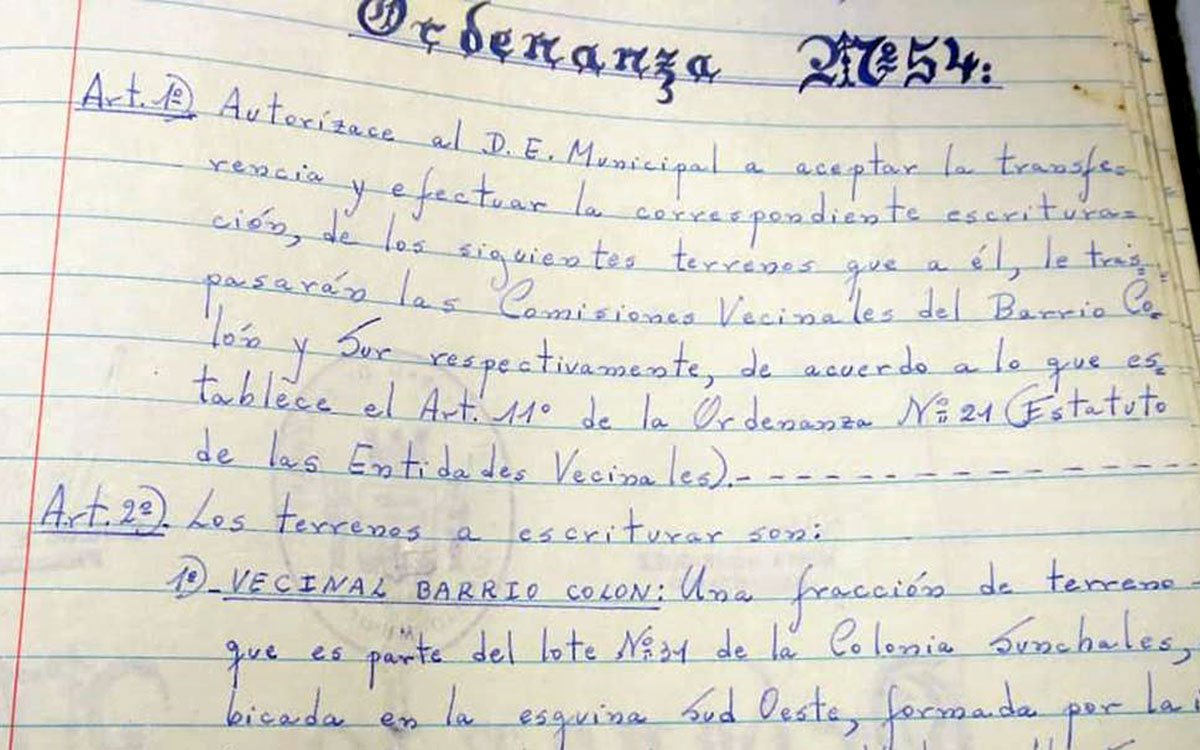 Ordenanza Nº 54:
Art. 1º) Autorízace al D. E. Municipal a aceptar la transfe=
rencia y efectuar la correspondiente escritura=
ción, de los siguientes terrenos que a él, le tras=
pasarán las Comisiones Vecinales del Barrio Co=
lón y Sur respectivamente, de acuerdo a lo que es=
tablece el Art. 11º de la Ordenanza Nº 21 (Estatuto
de las Entidades Vecinales).- - - - - - - - - - - - - - - -
Art. 2º). Los terrenos a escriturar son:
1º)- VECINAL BARRIO COLON: Una fracción de terreno
que es parte del lote Nº 31 de la Colonia Sunchales,
bicada en la esquina Sud Oeste, formada por la